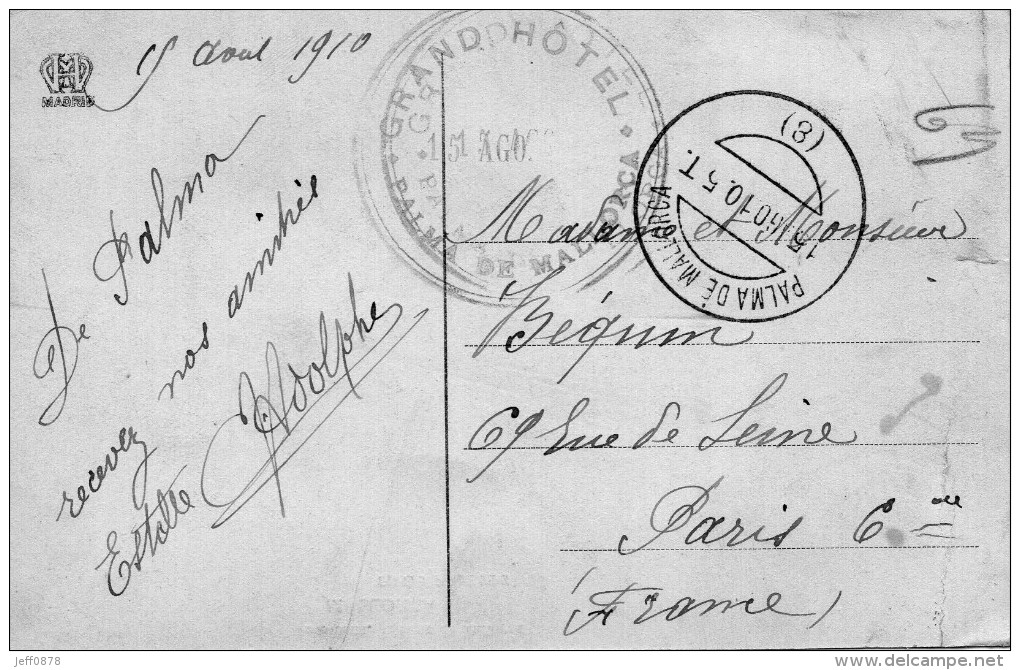 MADRID
15 Aout 1910
De Palma
recevez nos amitiés
Estelle Adolphe
GRAND HÔTEL
15 AGO
PALMA DE MALLORCA
PALMA DE MALLORCA
15 AGO 10.5T.
(8)
Madame et Monsieur
Béquin
69 Rue de Seine
Paris 6me
(France)
jeff0878
www.delcampe.net